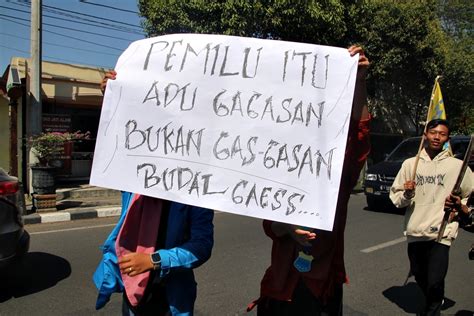 PEMILU ITU
ADU GAGASAN
BUKAN GAS-GASAN
BUDAL GAESS....